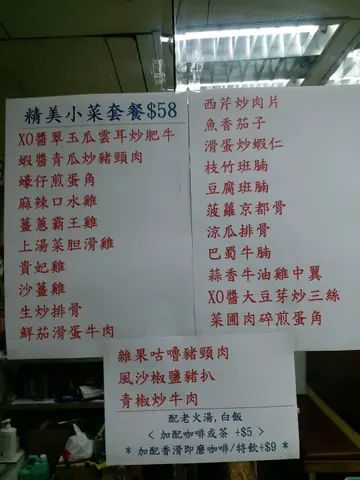 精美小菜套餐$58
XO醬翠玉瓜雲耳炒肥牛
蝦醬青瓜炒豬頸肉
蠔仔煎蛋角
麻辣口水雞
薑蔥霸王雞
上湯菜胆滑雞
貴妃雞
沙薑雞
生炒排骨
鮮茄滑蛋牛肉
西芹炒肉片
魚香茄子
滑蛋炒蝦仁
枝竹班腩
豆腐班腩
菠蘿京都骨
涼瓜排骨
巴蜀牛腩
蒜香牛油雞中翼
XO醬大豆芽炒三絲
菜圃肉碎煎蛋角
雜果咕嚕豬頸肉
風沙椒鹽豬扒
青椒炒牛肉
配老火湯,白飯
< 加配咖啡或茶 +$5 >
* 加配香滑即磨咖啡/特飲+$9 *